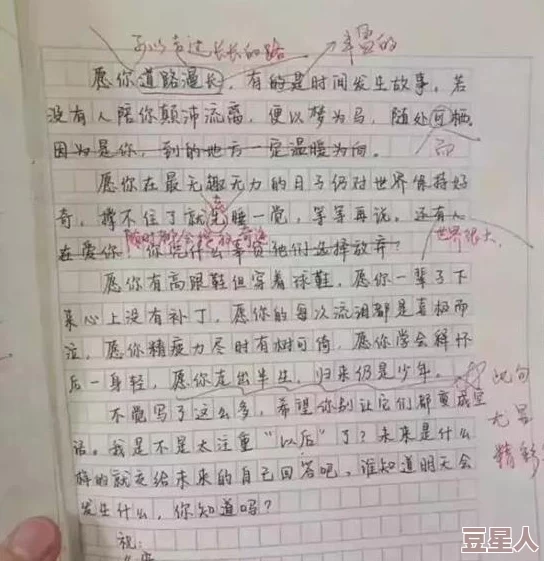 可以走过长长的路
丰盈的
愿你道路漫长，有的是时间发生故事。若
没有人陪你颠沛流离，便以梦为马，随处可栖。
而
因为是你，到的地方一定温暖为向。
愿你在最无趣无力的日子仍对世界保持好
奇，撑不住了就先睡一觉，等等再说。还有人
去
随时都会有奇迹
世界很大
在爱你，你凭什么辜负他们选择放弃？
愿你有高跟鞋但穿着球鞋，愿你一辈子下
来心上没有补丁，愿你的每次流泪都是喜极而
泣，愿你精疲力尽时有树可倚，愿你学会释怀
后一身轻，愿你走出半生，归来仍是少年。
好
此句
尤显
精彩
不觉写了这么多，希望你别让它们都变成空
话。我是不是太注重“以后”了？未来是什么
样的就交给未来的自己回答吧，谁知道明天会
发生什么，你知道吗？
祝：
豆星人